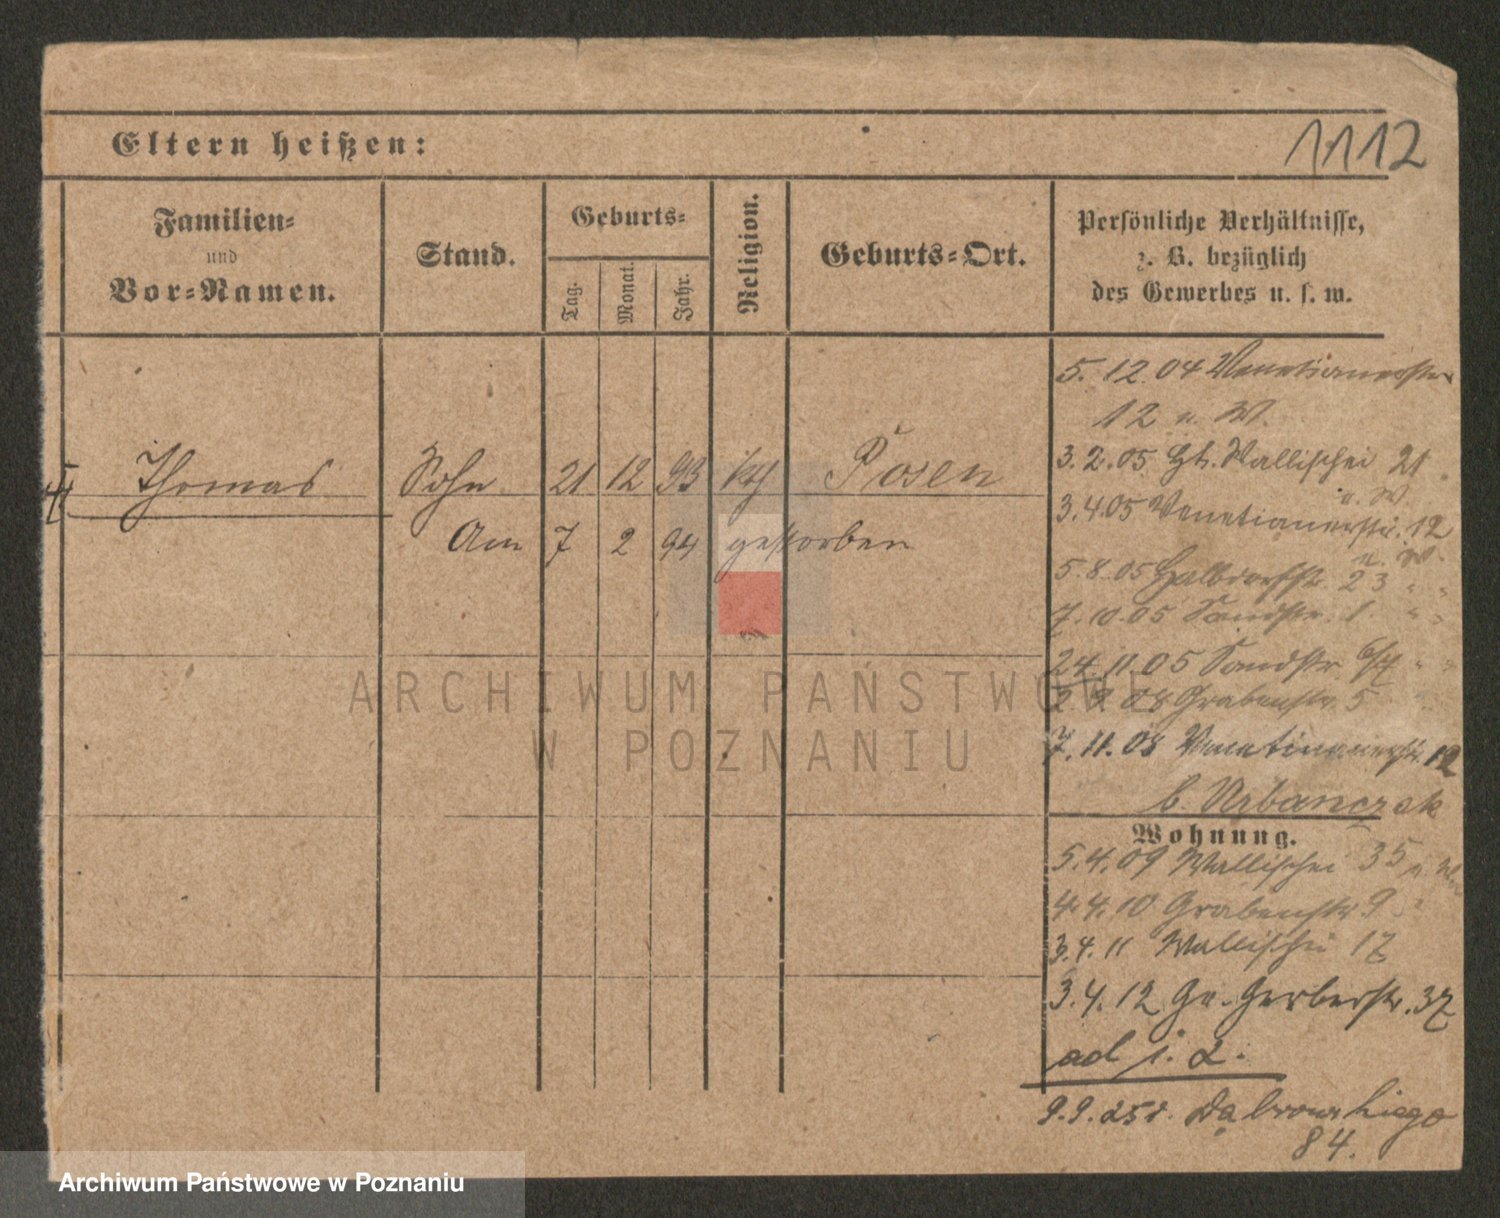 1112
Eltern heißen:
Familien-
und
Vor-Namen.
Stand.
Geburts-
Tag.
Monat.
Jahr.
Religion.
Geburts-Ort.
Persönliche Verhältnisse,
z. B. bezüglich
des Gewerbes u. s. w.
Thomas Sohn 21 12 93 kth Posen
Am 7 2 94 gestorben
5. 12. 04 Venetianerstr
12 u. W.
3. 2. 05 Wallischei 21
u. W.
3. 4. 05 Venetianerstr. 12
5. 8. 05 Halbdorfstr. 23
7. 10. 05 Sandstr. 1.
24. 11. 05 Sandstr.
08 Grabenstr 5
7. 11. 08 Venetianerstr. 12
b. Urbanczak
Wohnung.
5. 4. 09 Wallischei 35
4. 4. 10 Grabenstr 9
3. 4. 11 Wallischei 17
3. 4. 12 Gr. Gerberstr. 37
ad j. 2.
9. 9. 25 r. Dąbrowskiego
84.
ARCHIWUM PAŃSTWOWE
W POZNANIU
Archiwum Państwowe w Poznaniu